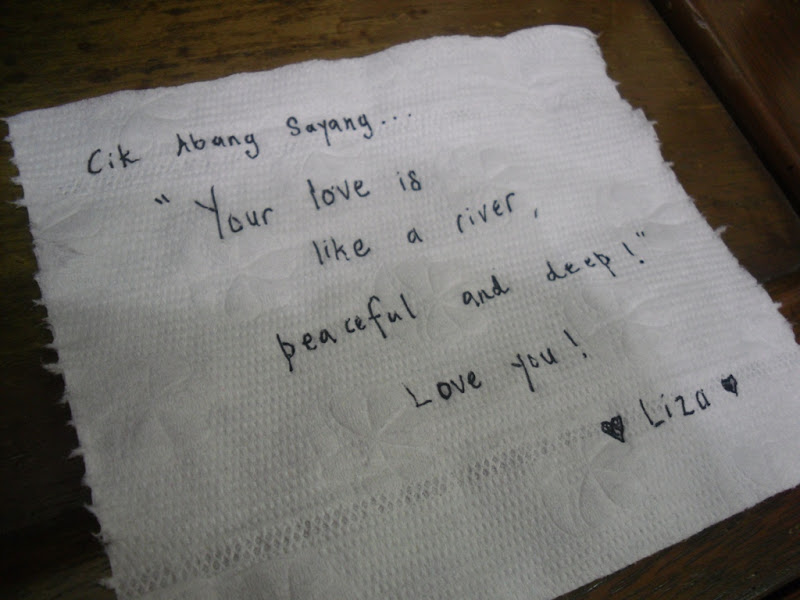 Cik Abang Sayang...
"Your love is
like a river,
peaceful and deep!"
Love you!
♥ Liza ♥